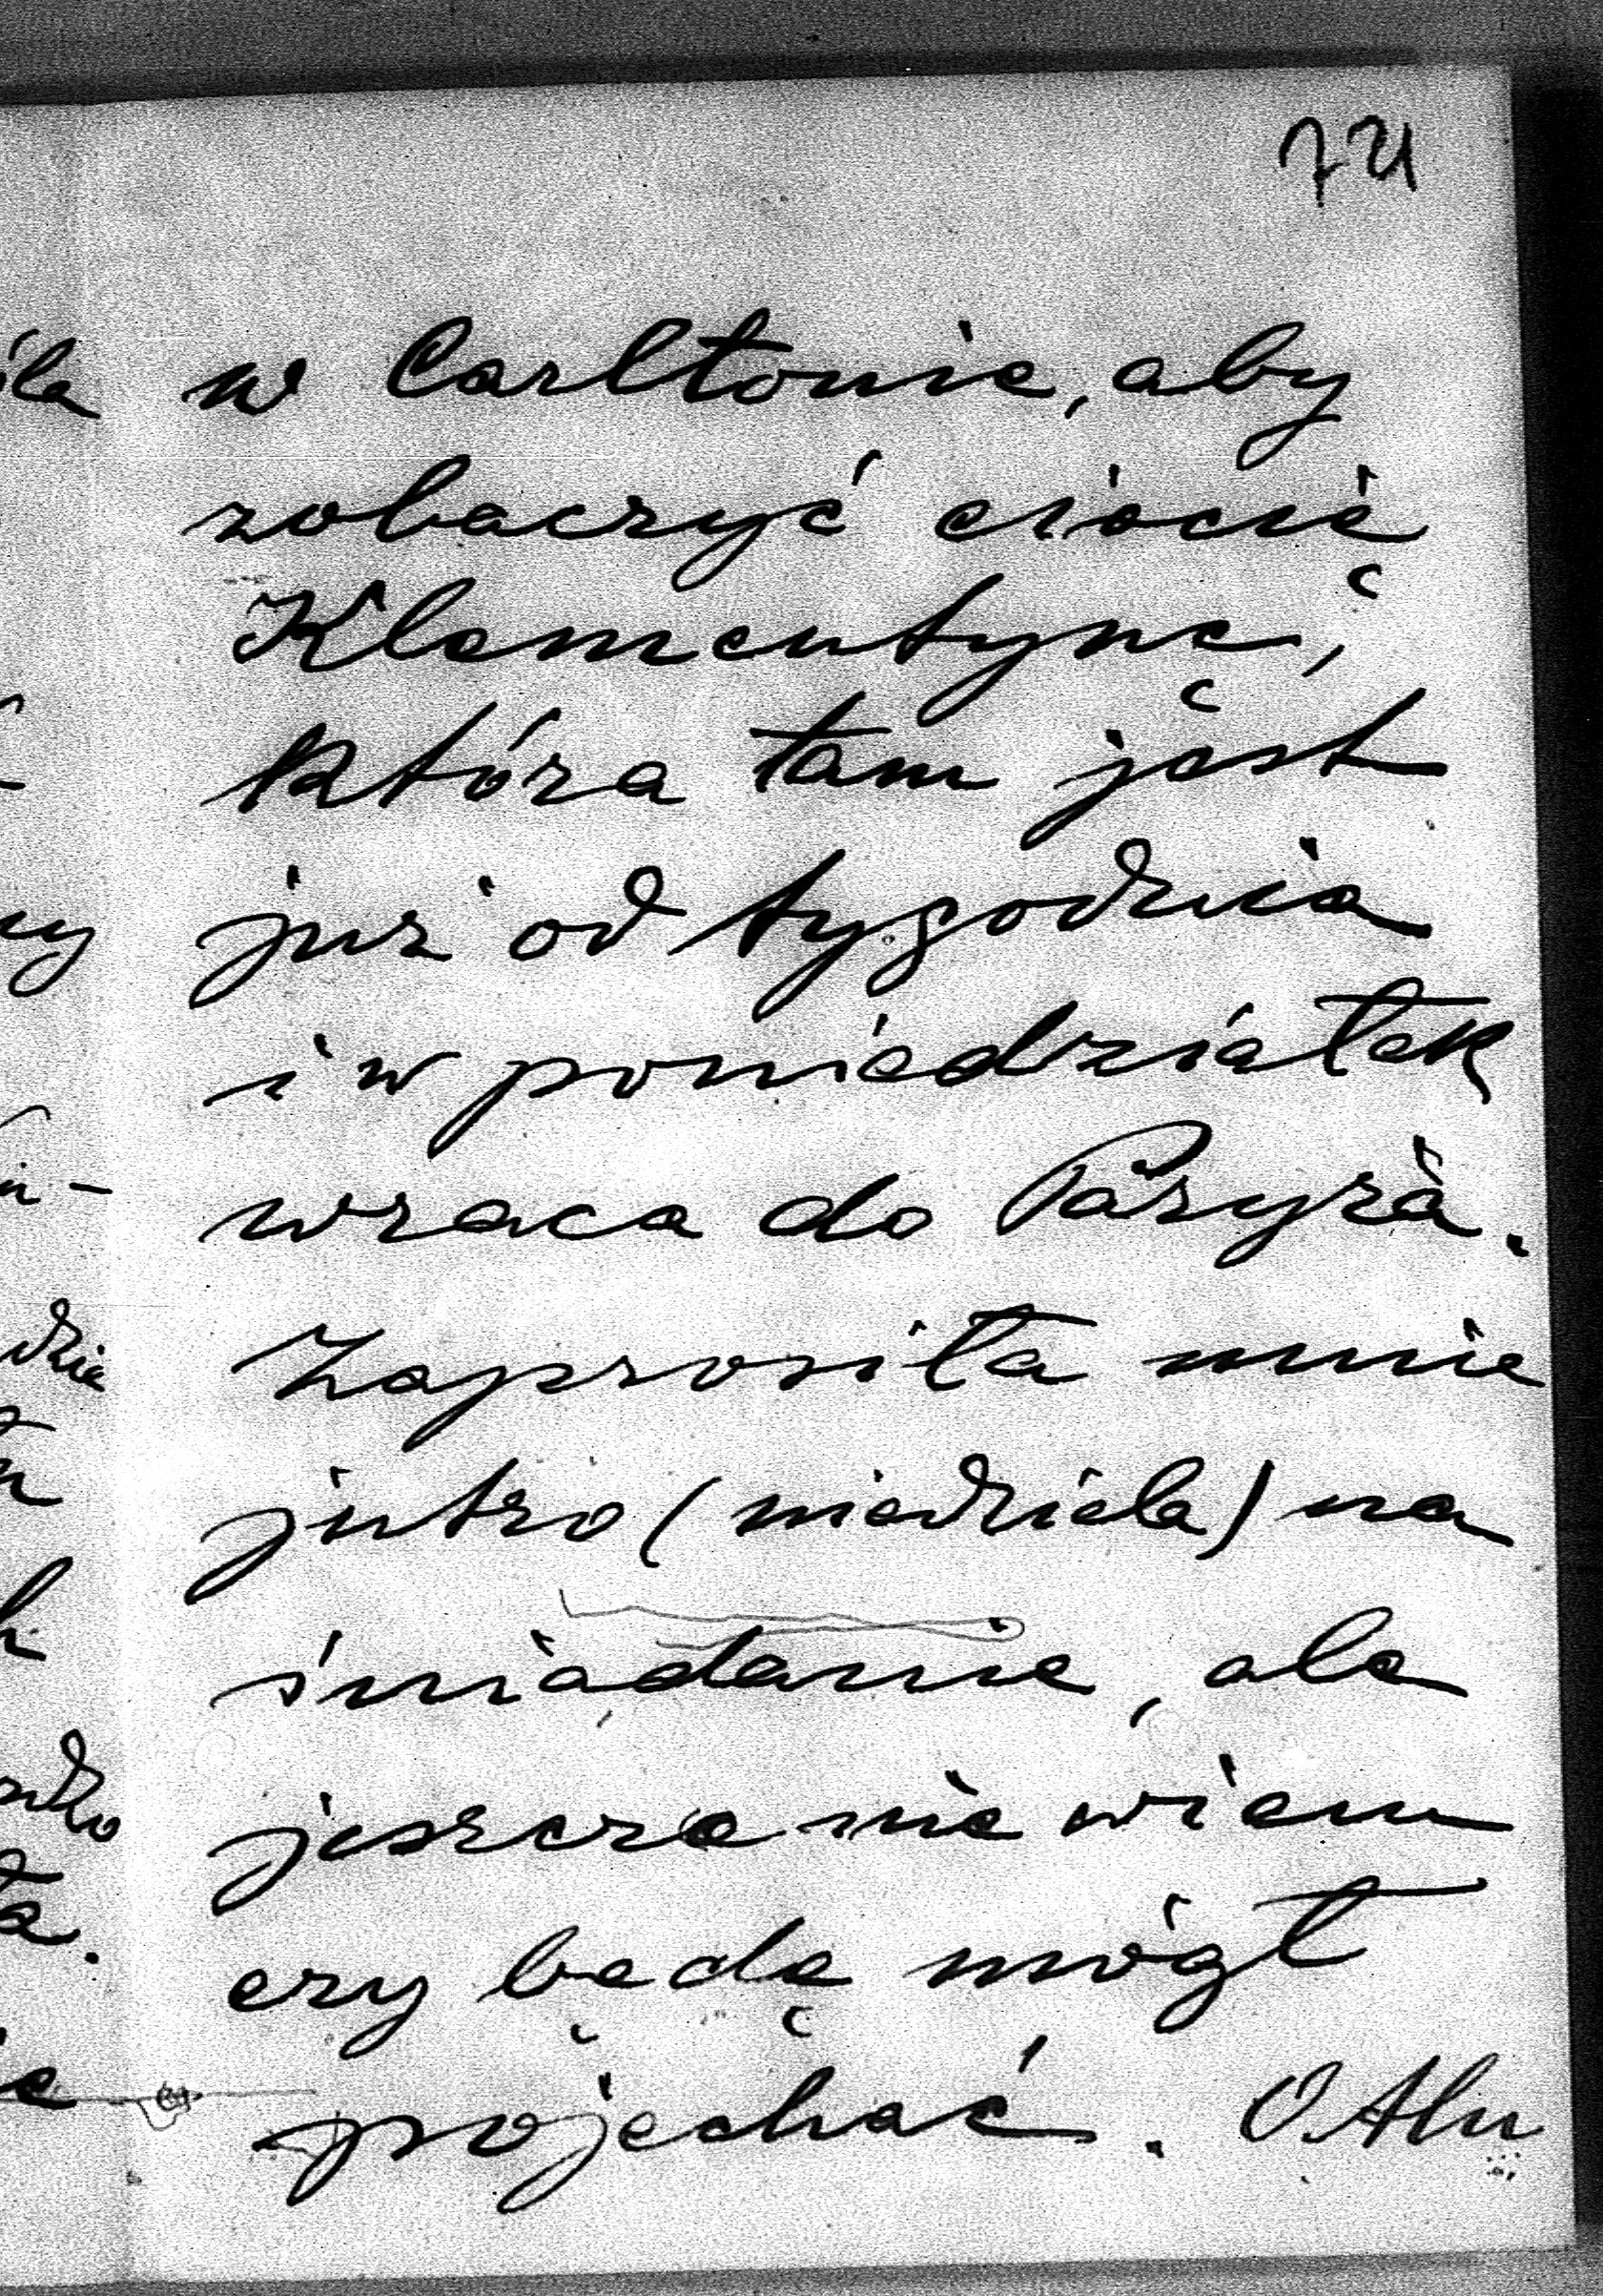 w Carltonie, aby
zobaczyć ciocię
Klementynę,
która tam jest
już od tygodnia
i w poniedziałek
wraca do Paryża.
Zaprosiła mnie
jutro (niedziela) na
śniadanie, ale
jeszcze nie wiem
czy będę mógł
pojechać. O Alu